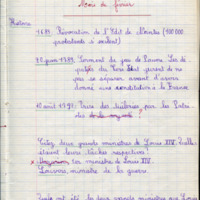 Mois de février
Histoire
1685. Révocation de l'Edit de Nantes (100 000
protestants s'exilent)
20 juin 1789. Serment du jeu de Paume. Les dé-
putés du Tiers Etat jurent de ne
pas se séparer avant d'avoir
donné une constitution à la France
10 août 1792. Prise des Tuileries par les
de la royauté
Citez deux grands ministres de Louis XIV. Quelles
étaient leurs tâches respectives
1er ministre de Louis XIV
Louvois, ministre de la guerre
ont été les deux grands ministres que Louis